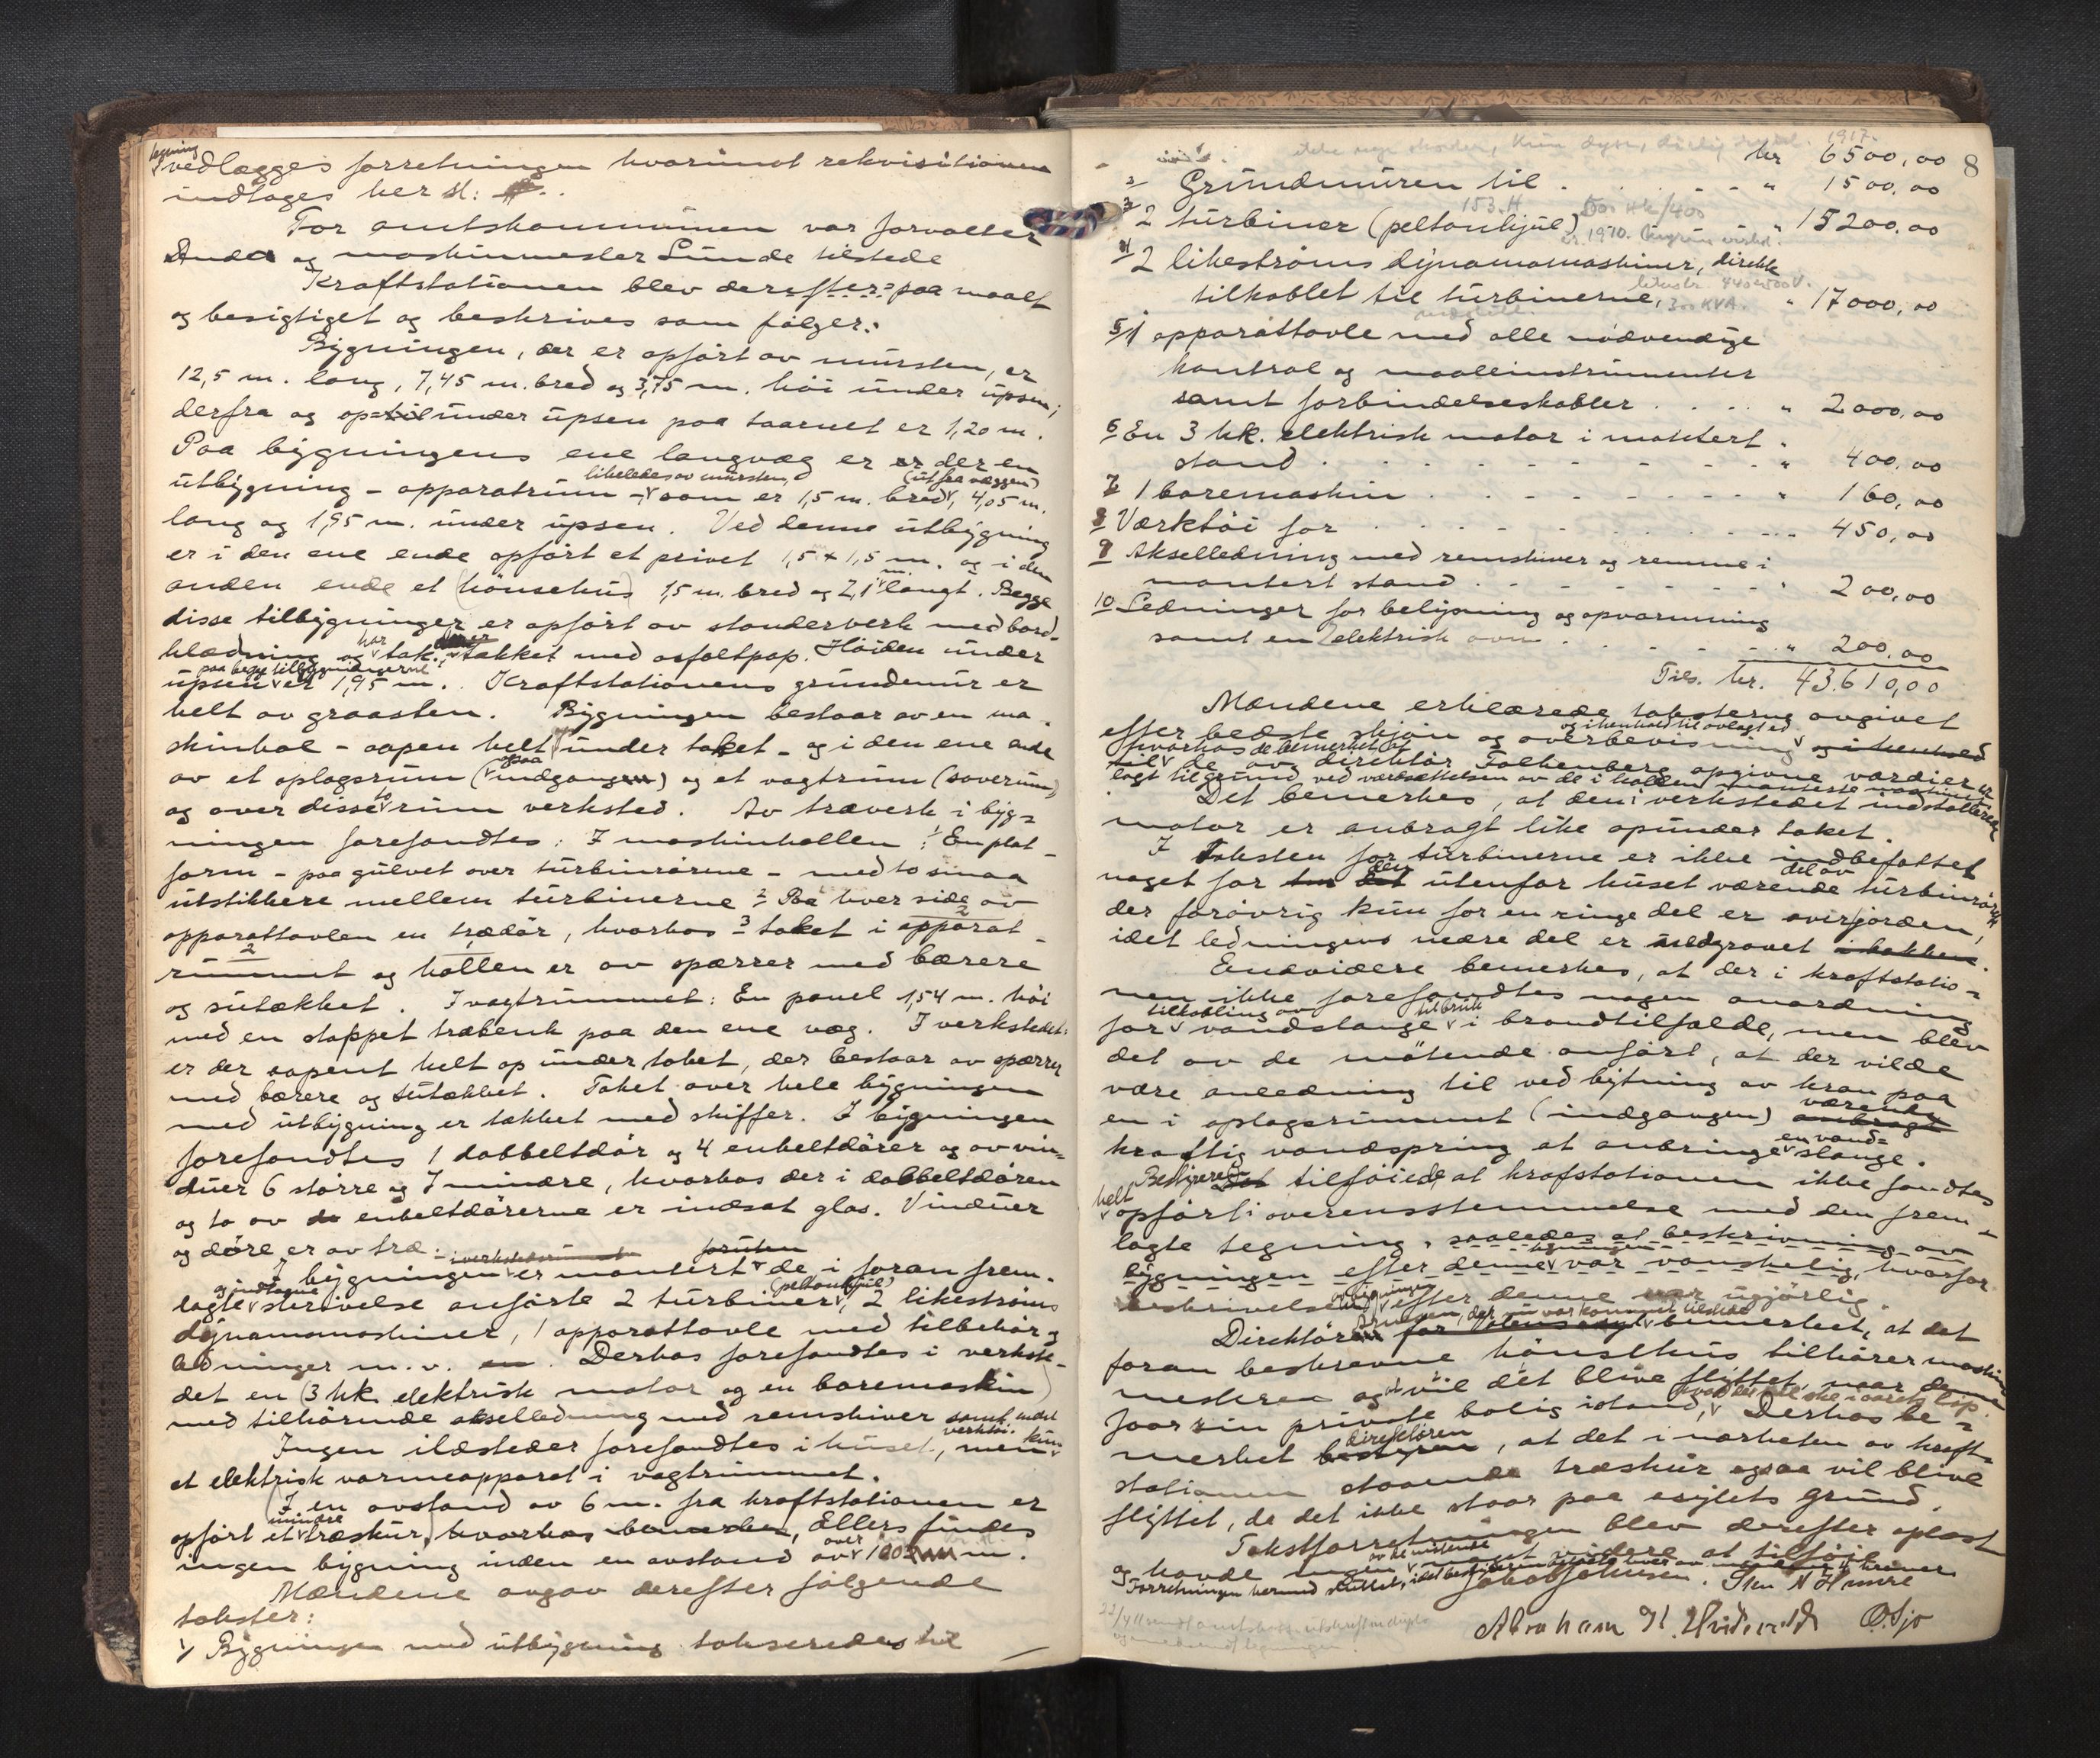 tegning
vedlægges forretningen hvorimot rekvisitionen
indtages her sl:
For amtskommunen var forvalter
og maskinmester Lunde tilstede
Kraftstationen blev derefter paa maalt
og besigtiget og beskrives som følger:
Bygningen, der er opført av mursten, er
12,5 m. lang, 7,45 m. bred og 3,75 m. høi under upsen;
derfra og op til under upsen paa taarnet er 1,20 m.
Paa bygningens ene langvæg er er der en
likeledes av mursten (ut fra væggen)
utbygning - apparatrum - som er 1,5 m. bred, 4,05 m.
lang og 1,95 m. under upsen. Ved denne utbygning
er i den ene ende opført et privet 1,5 x 1,5 m. og i den
anden ende et (hønsehus) 1,5 m. bred og 2,1 m. langt. Begge
disse tilbygninger er opført av stenderverk med bord-
klædning og har tak, tækket med asfaltpap. Høiden under
paa begge tilbygningerne
upsen er 1,95 m. Kraftstationens grundmur er
helt av graasten. Bygningen bestaar av en ma-
skinhal - aapen helt under taket - og i den ene ende
av et oplagsrum (ogsaa indgang) og et vagtrum (soverum)
og over disse to rum verksted. Av træverk i byg-
ningen forefandtes: I maskinhallen: 1 En plat-
form - paa gulvet over turbinrørene - med to smaa
utstikkere mellem turbinerne 2 Paa hver side av
apparattavlen en trædør, hvorhos 3 taket i apparat-
rummet og hallen er av spærrer med bærere
og sutækket. I vagtrummet: En panel 1,54 m. høi
med en stoppet træbenk paa den ene væg. I verkstedet
er der aapent helt op under taket, der bestaar av spærrer
med bærere og sutækket. Taket over hele bygningen
med utbygning er tækket med skiffer. I bygningen
forefandtes 1 dobbeltdør og 4 enkeltdører og av vin-
duer 6 større og 7 mindre, hvorhos der i dobbeltdøren
og to av de enkeltdørerne er indsat glas. Vinduer
og døre er av træ.
i verkstedsrummet foruten
I bygningen er montert de i foran frem-
og indtagne (peltonhjul)
lagte skrivelse anførte 2 turbiner, 2 likestrøms
dynamomaskiner, 1 apparattavle med tilbehør og
ledninger m. v. Derhos forefandtes i verkste-
det en (3 hk. elektrisk motor og en boremaskin)
med tilhørende akselledning med remskiver samt
verktøi.
Ingen ildsteder forefandtes i huset, men kun
et elektrisk varmeapparat i vagtrummet.
I en avstand av 6 m. fra kraftstationen er
mindre
opført et træskur, hvorhos bemerkes, Ellers findes
ingen bygning inden en avstand av over 100 m.
Mændene avgav derefter følgende
takster:
1/ Bygningen med utbygning takseredes til
8
1917.
kr 6500,00
2/ Grundmuren til . . . . " 1500,00
153. H 500 Hk/400
3/ 2 turbiner (peltonhjul) " 15200,00
4/ 2 likestrøms dynamomaskiner, direkte
440-500 V.
tilkoblet til turbinerne, " 17000,00
300 KVA.
5/ 1 apparattavle med alle nødvendige
kontrol og maaleinstrumenter
samt forbindelseskabler . . . " 2000,00
6 En 3 hk. elektrisk motor i montert
stand . . . . " 400,00
7 1 boremaskin . . . . " 160,00
8 Værktøi for . . . . 450,00
9 Akselledning med remskiver og remme i
montert stand . . . . " 200,00
10 Ledninger for belysning og opvarmning
samt en elektrisk ovn . . . . " 200,00
Tils. kr. 43.610,00
Mændene erklærede taksterne avgivet
efter bedste skjøn og overbevisning og i henhold
hvorhos de bemerket at
til de av direktør Falkenberg opgivne værdier er
lagt til grund ved værdsættelsen av de i hallen monterte maskiner
Det bemerkes, at den i verkstedet installerede
motor er anbragt like opunder taket.
I taksten for turbinerne er ikke indbefattet
noget for den utenfor huset værende del av turbinrøret
der forøvrig kun for en ringe del er over jorden,
idet ledningens mere del er nedgravet i bakken.
Endvidere bemerkes, at der i kraftstatio-
nen ikke forefandtes nogen anordning
tilkobling av til bruk
for vandslange i brandtilfælde, men blev
det av de møtende anført, at der vilde
være anledning til ved bytning av kran paa
en i oplagsrummet (indgangen) værende
anbragt
kraftig vandspring at anbringe en vand-
slange.
Bestyreren tilføiede, at kraftstationen ikke fandtes
helt opført i overensstemmelse med den frem-
lagte tegning, saaledes at beskrivning av
bygningen efter denne tegningen var vanskelig, hvorfor
beskrivelsen efter denne var ugjørlig.
Direktøren for bemerket, at det
foran beskrevne hønsehus tilhører maskin-
mesteren og at vil det blive flyttet, naar denne
faar sin private bolig istand, hvad der vil ske i aarets løp. Derhos be-
direktøren
merket bestyreren, at det i nærheten av kraft-
stationen staaende træskur ogsaa vil blive
flyttet, da det ikke staar paa asylets grund.
Takstforretningen blev derefter oplæst
av de møtende
og havde ingen noget videre at tilføie.
Forretningen hermed sluttet,
Jakob Johnsen. Sten N Hunre
Abraham H. O. Sjo
22/4 11 sendt amtskass. utskrift